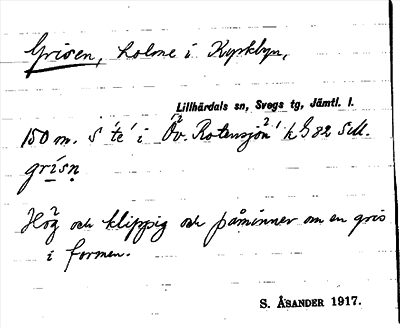 Grisen, holme i Kyrkbyn,
Lillhärdals sn, Svegs tg, Jämtl. l.
150 m. S 'te' i Öv. Rotensjön' k G 82 Sll.
grisn
Hög och klippig och påminner om en gris
i formen.
S. ÅSANDER 1917.